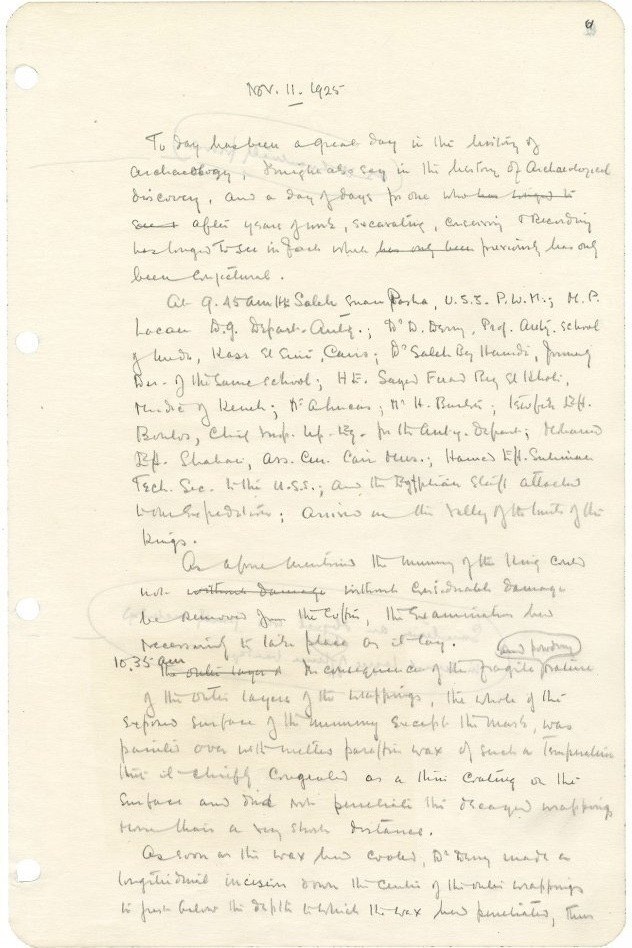 Nov. 11. 1925
To day has been a great day in the history of
archaeology, I might also say in the history of Archaeological
discovery, and a day of days for one who has longed to
after years of work, excavating, conserving & recording
has longed to see in fact which has only been previously has only
been conjectural.
At 9.45 am H.E. Saleh Enan Pasha, U.S.S. P.W.M.; M. P.
Lacau D.G. Depart. Antiq.; Dr D. Derry, Prof. Anty. school
of Meds, Kasr El Eini, Cairo; Dr Saleh Bey Hamdi, formerly
Dir. of the same school; H.E. Sayed Fuad Bey El Kholi,
Mudir of Keneh; Mr A. Lucas; Mr H. Burton; Tewfik Eff.
Boulos, Chief Insp. Up. Eg. for the Anty. Depart; Mohamed
Eff. Shaban, Ass. Cur. Cairo Mus.; Hamed Eff. Suliman
Tech. Sec. to the U.S.S.; and the Egyptian staff attached
to the Expedition; arrived on the Valley of the tombs of the
Kings.
As afore mentioned the mummy of the King could
not without damage without considerable damage
be removed from the coffin, the examination had
necessarily to take place as it lay.
and powdery
10.35 am
The outer layers In consequence of the fragile
of the outer layers of the wrappings, the whole of the
exposed surface of the mummy except the mask, was
painted over with melted paraffin wax of such a temperature
that it chiefly congealed as a thin coating on the
surface and did not penetrate the decayed wrappings
more than a very short distance.
As soon as the wax had cooled, Dr Derry made a
longitudinal incision down the centre of the outer wrappings
to just below the depth to which the wax had penetrated, thus